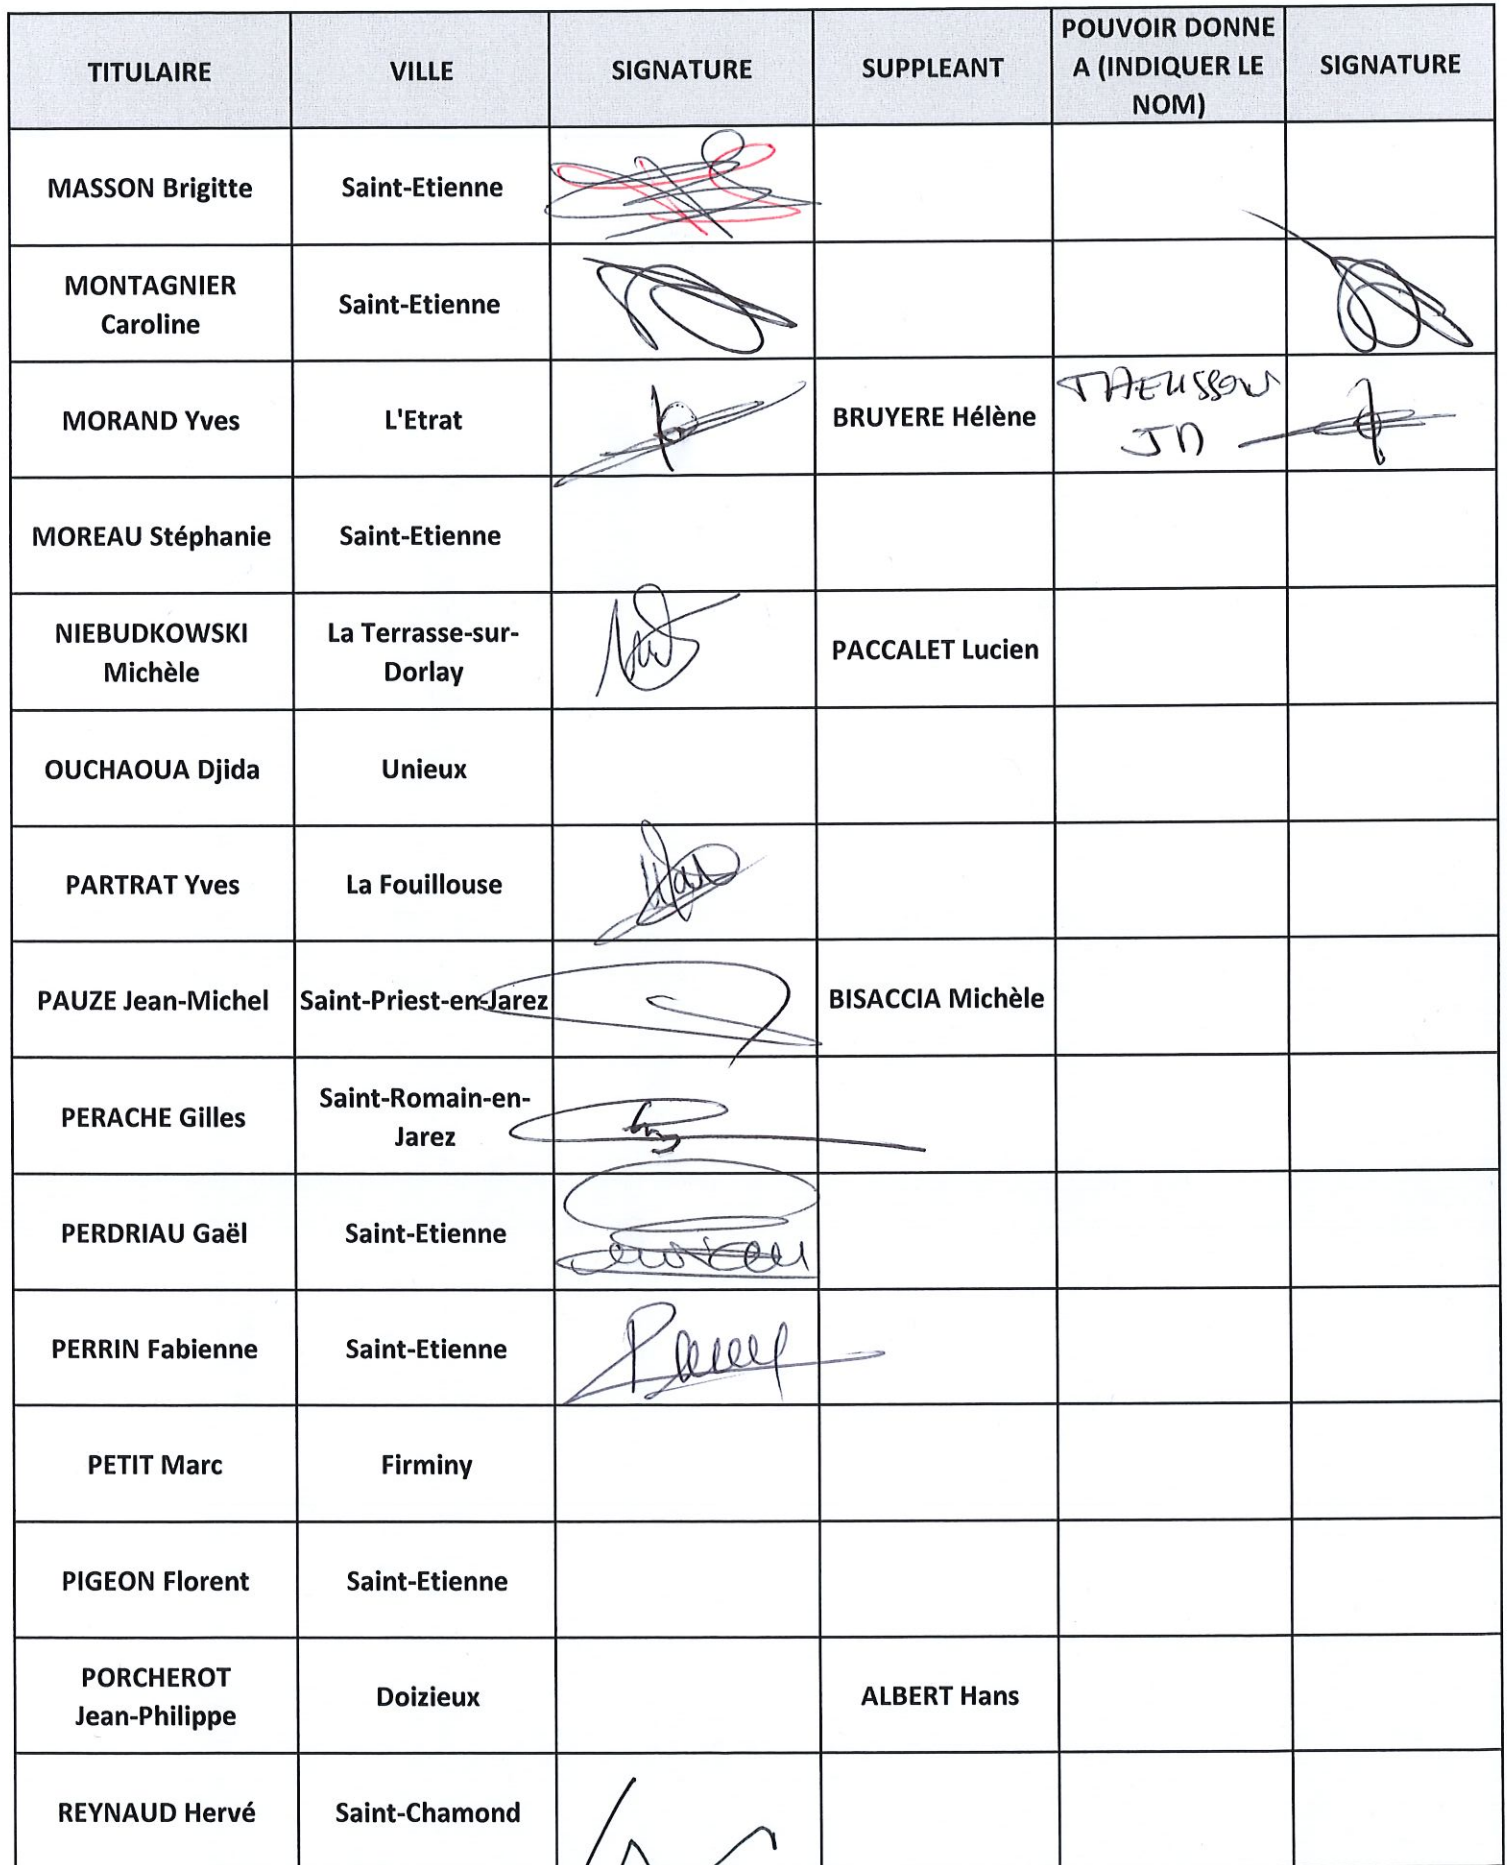 TITULAIRE
VILLE
SIGNATURE
SUPPLEANT
POUVOIR DONNE
A (INDIQUER LE
NOM)
SIGNATURE
MASSON Brigitte
Saint-Etienne
MONTAGNIER
Caroline
Saint-Etienne
MORAND Yves
L'Etrat
BRUYERE Hélène
JD
MOREAU Stéphanie
Saint-Etienne
NIEBUDKOWSKI
Michèle
La Terrasse-sur-
Dorlay
PACCALET Lucien
OUCHAOUA Djida
Unieux
PARTRAT Yves
La Fouillouse
PAUZE Jean-Michel
Saint-Priest-en-Jarez
BISACCIA Michèle
PERACHE Gilles
Saint-Romain-en-
Jarez
PERDRIAU Gaël
Saint-Etienne
PERRIN Fabienne
Saint-Etienne
PETIT Marc
Firminy
PIGEON Florent
Saint-Etienne
PORCHEROT
Jean-Philippe
Doizieux
ALBERT Hans
REYNAUD Hervé
Saint-Chamond